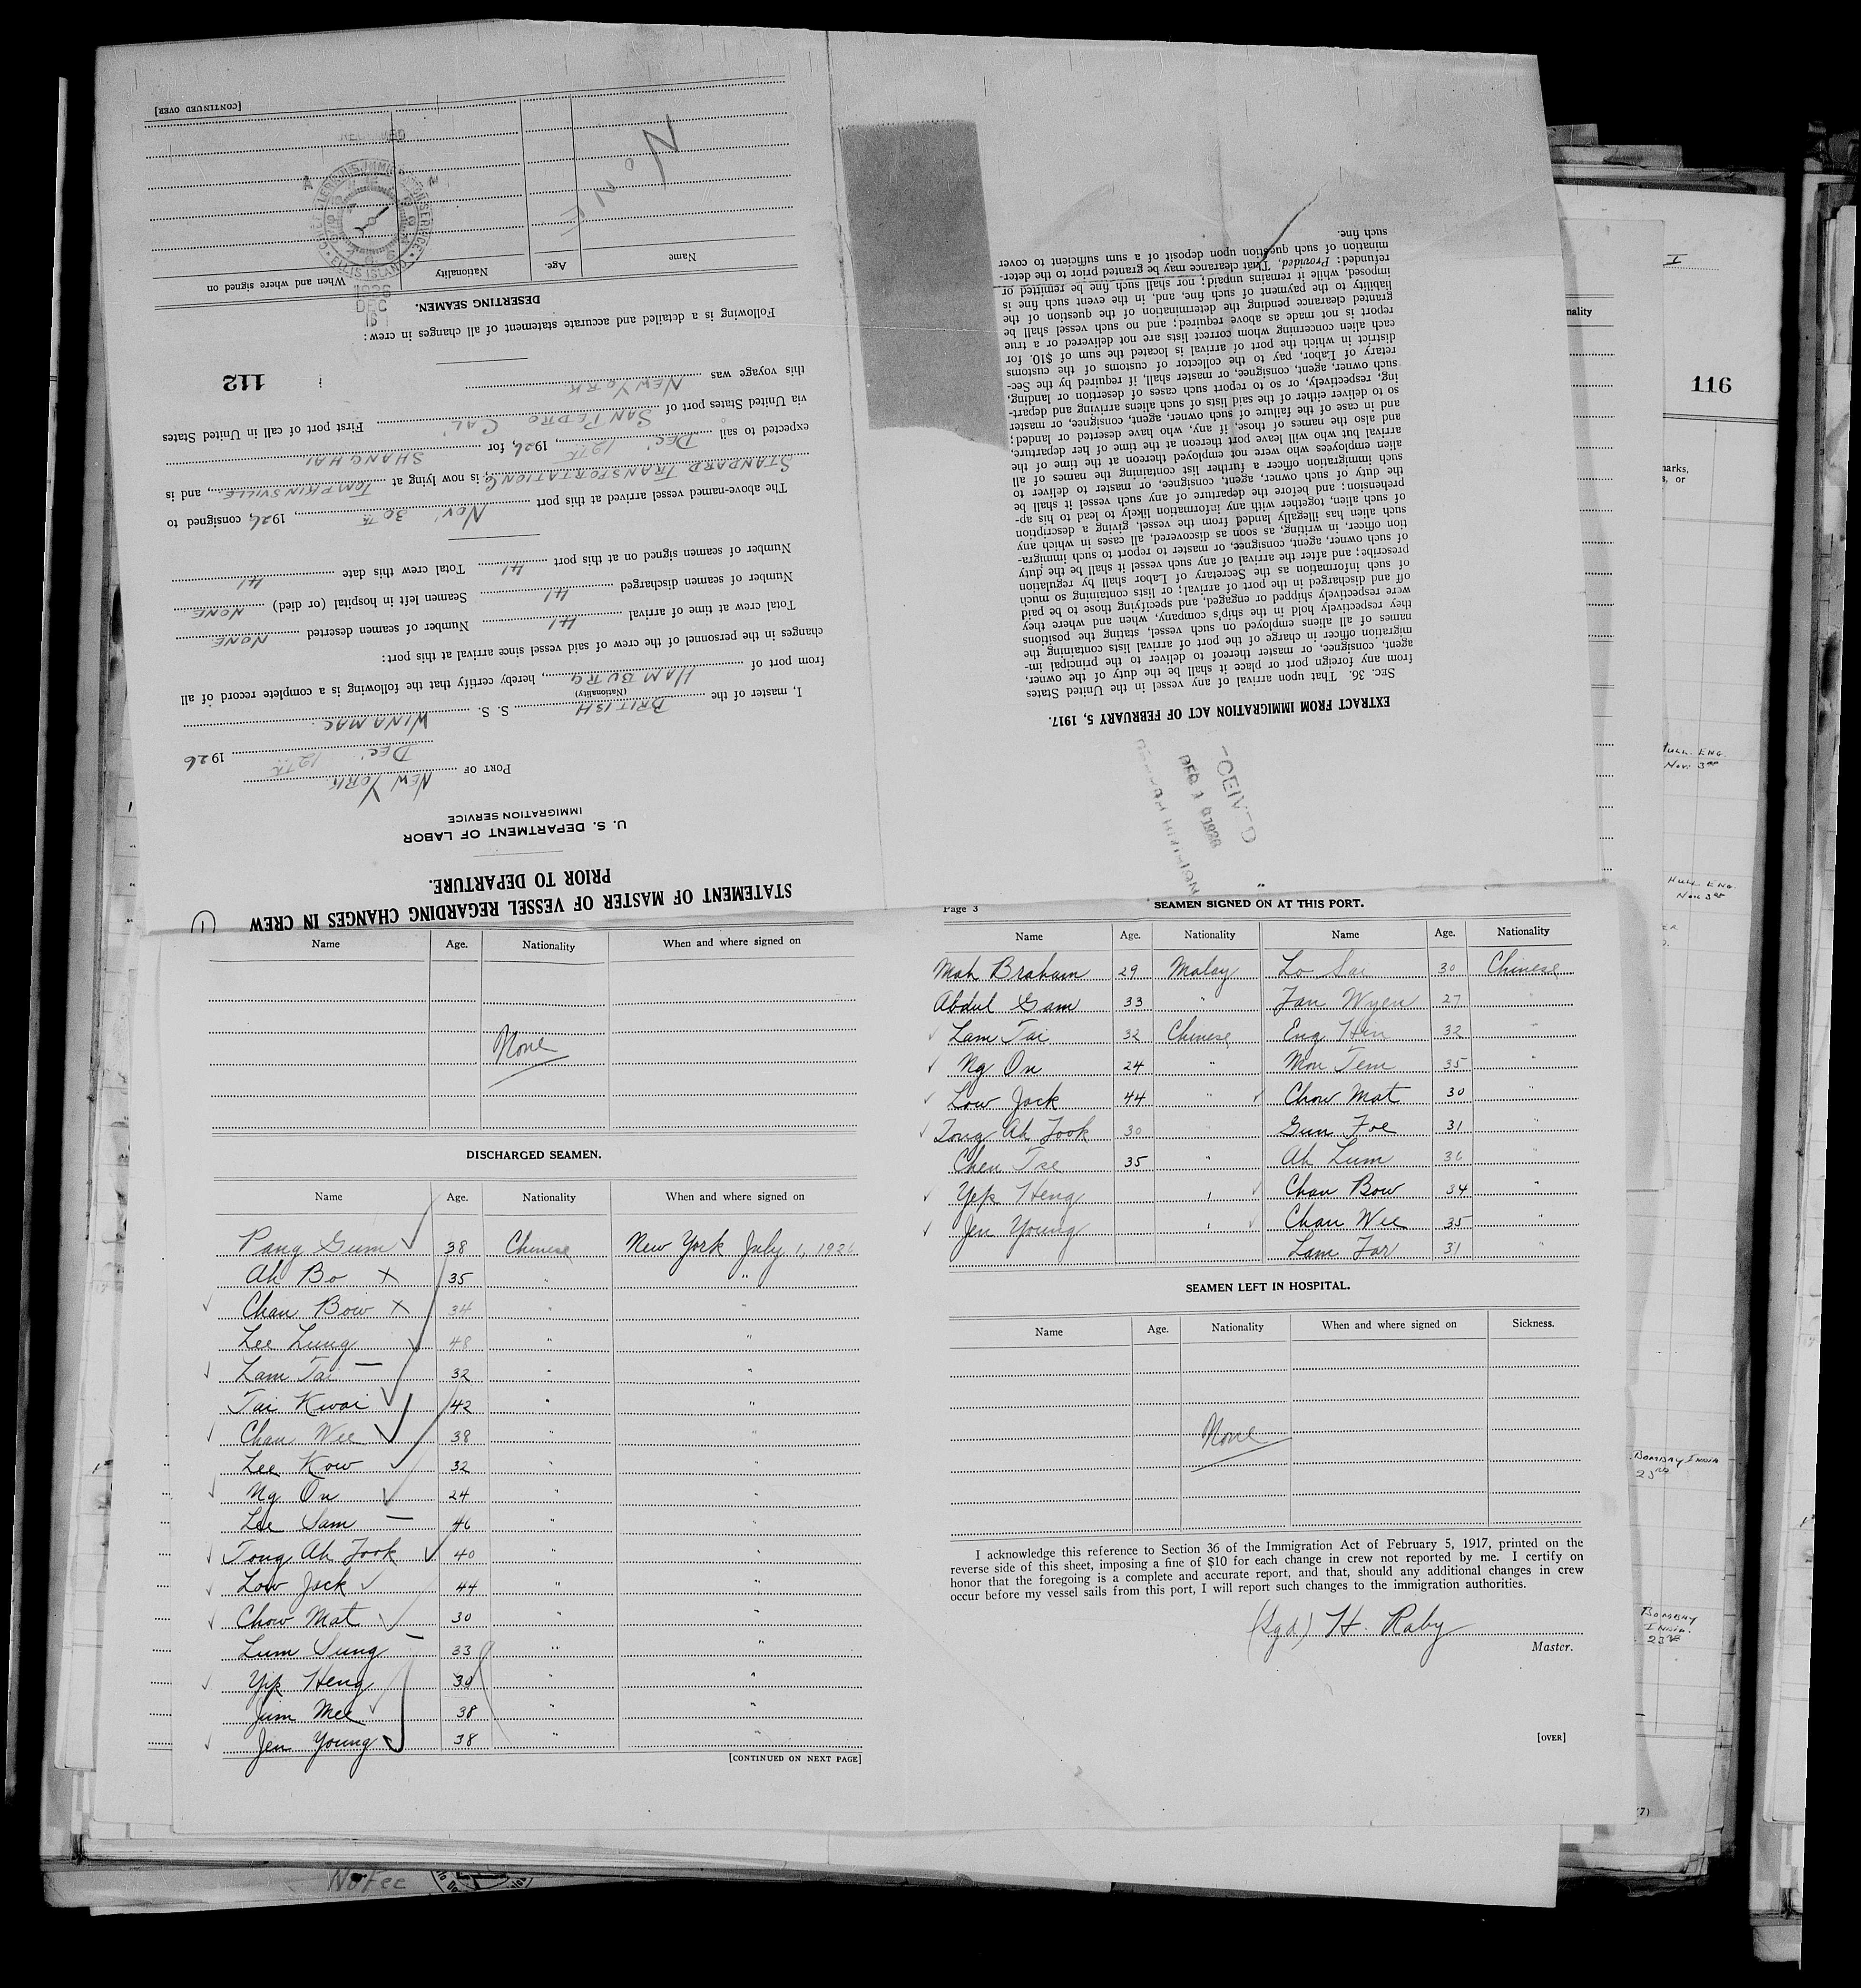 STATEMENT OF MASTER OF VESSEL REGARDING CHANGES IN CREW
PRIOR TO DEPARTURE.
U. S. DEPARTMENT OF LABOR
IMMIGRATION SERVICE
PORT OF NEW YORK
DEC. 12TH 1926
I, master of the BRITISH S. S. WINAMAC.
(Nationality)
from port of HAMBURG, hereby certify that the following is a complete record of all
changes in the personnel of the crew of said vessel since arrival at this port:
Total crew at time of arrival 41 Number of seamen deserted NONE
Number of seamen discharged 41 Seamen left in hospital (or died) NONE
Number of seamen signed on at this port 41 Total crew this date 41
The above-named vessel arrived at this port NOV. 30TH, 1926, consigned to
STANDARD TRANSPORTATION Co, is now lying at TOMPKINSVILLE, and is
expected to sail DEC. 12TH, 1926, for SHANGHAI
via United States port of SAN PEDRO CAL. First port of call in United States
this voyage was NEW YORK
112
Following is a detailed and accurate statement of all changes in crew:
DESERTING SEAMEN.
Name Age. Nationality When and where signed on
NONE
ELLIS ISLAND
1926
DEC
[CONTINUED OVER]
RECEIVED
EXTRACT FROM IMMIGRATION ACT OF FEBRUARY 5, 1917.
SEC. 36. That upon arrival of any vessel in the United States
from any foreign port or place it shall be the duty of the owner,
agent, consignee, or master thereof to deliver to the principal im-
migration officer in charge of the port of arrival lists containing the
names of all aliens employed on such vessel, stating the positions
they respectively hold in the ship's company, when and where they
were respectively shipped or engaged, and specifying those to be paid
off and discharged in the port of arrival; or lists containing so much
of such information as the Secretary of Labor shall by regulation
prescribe; and after the arrival of any such vessel it shall be the duty
of such owner, agent, consignee, or master to report to such immigra-
tion officer, in writing, as soon as discovered, all cases in which any
such alien has illegally landed from the vessel, giving a description
of such alien, together with any information likely to lead to his ap-
prehension; and before the departure of any such vessel it shall be
the duty of such owner, agent, consignee, or master to deliver to
such immigration officer a further list containing the names of all
alien employees who were not employed thereon at the time of the
arrival but who will leave port thereon at the time of her departure,
and also the names of those, if any, who have deserted or landed;
and in case of the failure of such owner, agent, consignee, or master
so to deliver either of the said lists of such aliens arriving and depart-
ing, respectively, or so to report such cases of desertion or landing,
such owner, agent, consignee, or master shall, if required by the Sec-
retary of Labor, pay to the collector of customs of the customs
district in which the port of arrival is located the sum of $10. for
each alien concerning whom correct lists are not delivered or a true
report is not made as above required; and no such vessel shall be
granted clearance pending the determination of the question of the
liability to the payment of such fine, and, in the event such fine is
imposed, while it remains unpaid; nor shall such fine be remitted or
refunded: Provided, That clearance may be granted prior to the deter-
mination of such question upon deposit of a sum sufficient to cover
such fine.
Name Age. Nationality When and where signed on
None
DISCHARGED SEAMEN.
Name Age. Nationality When and where signed on
Pang Gum 38 Chinese New York July 1, 1926
Ah Bo X 35 " "
Chan Bow X 34 " "
Lee Lung 48 " "
Lam Tai 32 " "
Tai Kwai 42 " "
Chan Wee 38 " "
Lee Kow 32 " "
Ng On 24 " "
Lee Sam 46 " "
Tong Ah Fook 40 " "
Low Jack 44 " "
Chow Mat 30 " "
Lum Sung 33 " "
Yip Heng 30 " "
Jum Mee 38 " "
Jen Young 38 " "
[CONTINUED ON NEXT PAGE]
Page 3
SEAMEN SIGNED ON AT THIS PORT.
Name Age. Nationality Name Age. Nationality
Mah Braham 29 Malay Lo Sai 30 Chinese
Abdul Gam 33 " Jan Wyen 27 "
Lam Tai 32 Chinese Eng Hin 32 "
Ng On 24 " Mon Tem 35 "
Low Jack 44 " Chow Mat 30 "
Tong Ah Fook 30 Gun Foe 31 "
Chen Tse 35 " Ah Lum 36 "
Yep Heng " Chan Bow 34 "
Jen Young " Chan Wee 35 "
Lam Far 31 "
SEAMEN LEFT IN HOSPITAL.
Name Age. Nationality When and where signed on Sickness.
None
I acknowledge this reference to Section 36 of the Immigration Act of February 5, 1917, printed on the
reverse side of this sheet, imposing a fine of $10 for each change in crew not reported by me. I certify on
honor that the foregoing is a complete and accurate report, and that, should any additional changes in crew
occur before my vessel sails from this port, I will report such changes to the immigration authorities.
(Sgd) H. Raby
Master.
[OVER]
116
HULL ENG.
Nov. 3RD
HULL ENG.
Nov 3RD
BOMBAY INDIA
23RD
BOMBAY
INDIA.
23RD
No Fee